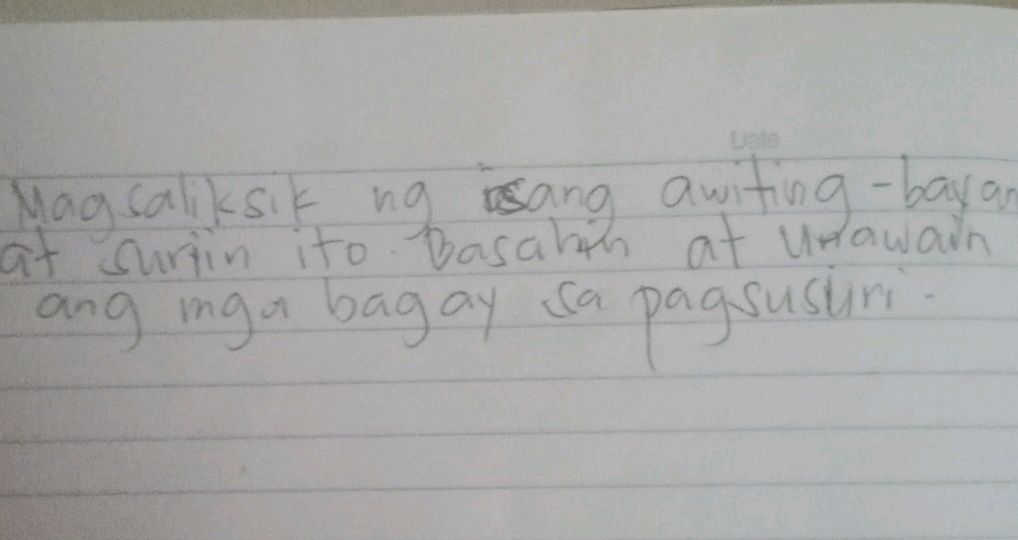 Date
Magsaliksik ng isang awiting-bayan
at suriin ito. Basahin at unawain
ang mga bagay sa pagsusuri.